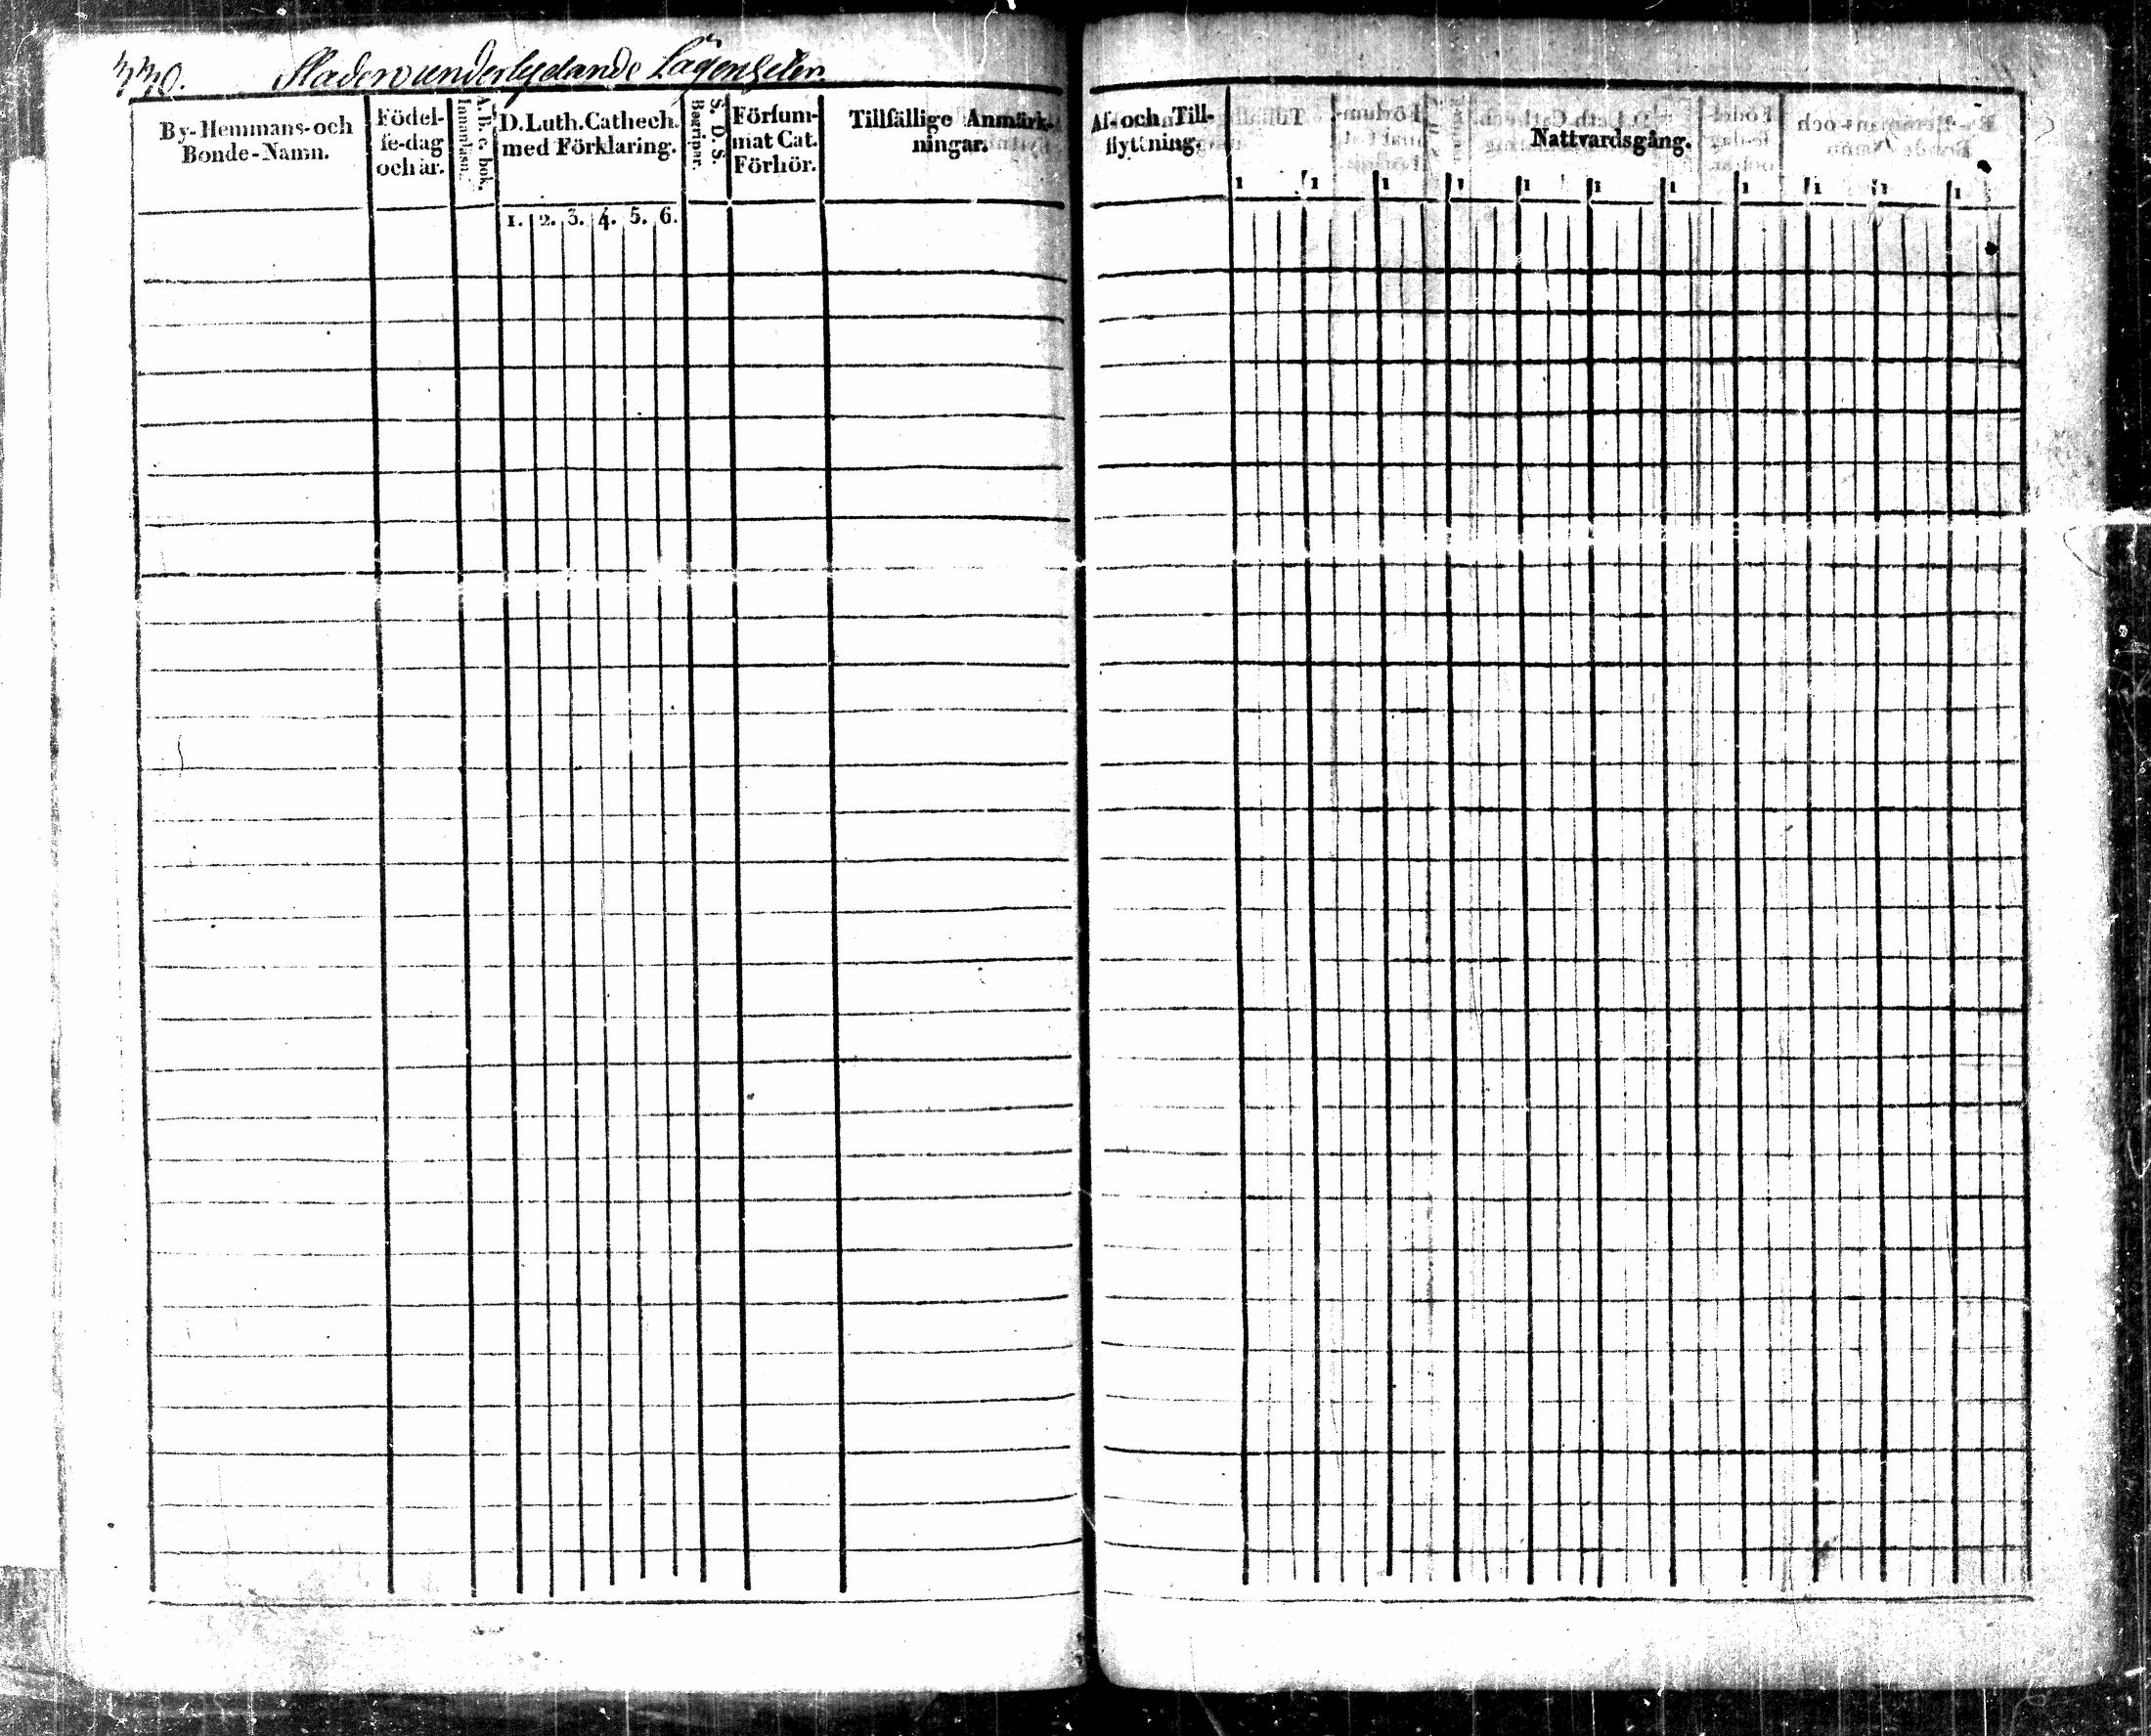 440. Staden underlydande Lägenheter
By-Hemmans-och
Bonde-Namn.
Födel-
se-dag
och år.
A. B. c. bok.
Innanläsn.
D. Luth. Cathech.
med Förklaring.
1. 2. 3. 4. 5. 6.
S. D. S.
Begripet.
Försum-
mat Cat.
Förhör.
Tillfällige Anmärk-
ningar.
Af- och Till-
flyttning.
Nattvardsgång.
1 1 1 1 1 1 1 1 1 1 1